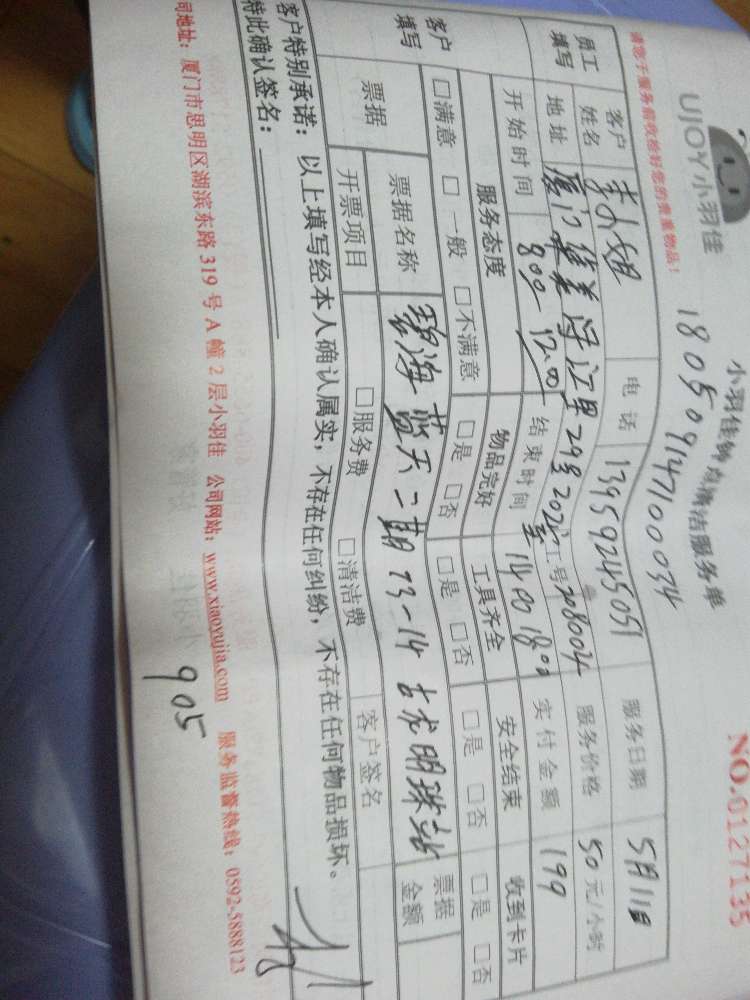 UJOY小羽佳
小羽佳钟点清洁服务单
NO.0127135
请您于服务前收拾好您的贵重物品！
18050914710034
员工填写
客户姓名 李小姐 电话 13959245051 服务日期 5月11日
地址 厦门集美浔江里29号202室 工号 208004 服务价格 50元/小时
开始时间 800 1200 结束时间 1400 1800 实付金额 199
客户填写
服务态度 物品完好 工具齐全 安全结束 收到卡片
□满意 □一般 □不满意 □是 □否 □是 □否 □是 □否 □是 □否
票据 票据名称 碧海蓝天二期 73-14 古龙明珠站 票据金额
开票项目 □服务费 □清洁费 客户签名
客户特别承诺：以上填写经本人确认属实，不存在任何纠纷，不存在任何物品损坏。
特此确认签名：
司地址：厦门市思明区湖滨东路319号A幢2层小羽佳 公司网站：www.xiaoyujia.com 服务监督热线：0592-5888123
905